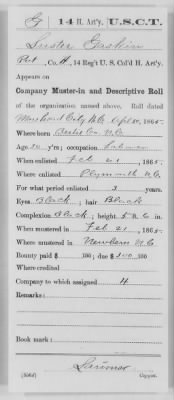 G | 14 H. Art'y. | U.S.C.T.
Luster Gaskin
Pvt, Co. H, 14 Reg't U. S. Col'd H. Art'y.
Appears on
Company Muster-in and Descriptive Roll
of the organization named above. Roll dated
Morehead City N.C. Apl 30, 1865.
Where born N.C.
Age y'rs; occupation
When enlisted Feb 21, 1865.
Where enlisted Plymouth N.C.
For what period enlisted 3 years.
Eyes Black; hair Black
Complexion Black; height 5 ft. 6 in.
When mustered in Feb 21, 1865.
Where mustered in Newbern N.C.
Bounty paid $ 100; due $ 100
Where credited
Company to which assigned H
Remarks:
Book mark:
(356d) Copyist.